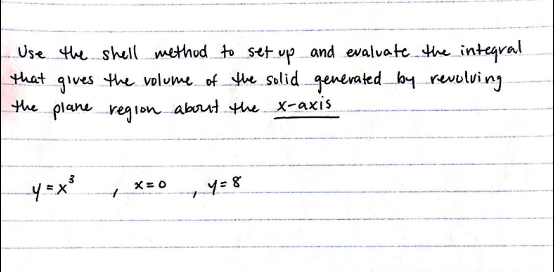 Use the shell method to set up and evaluate the integral
that gives the volume of the solid generated by revolving
the plane region about the x-axis
y = x³ , x = 0 , y = 8